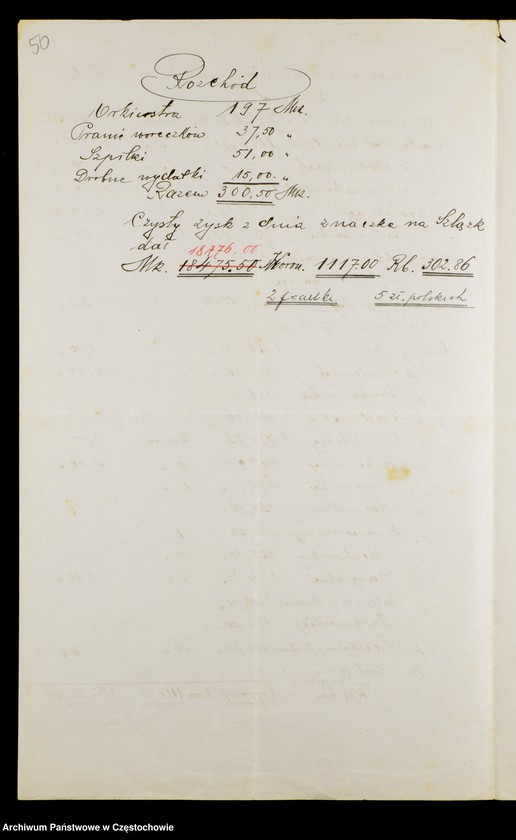 50
Rozchód
Orkiestra 197 Mk.
Pranie woreczków 37,50 "
Szpilki 51,00 "
Drobne wydatki 15,00 "
Razem 300,50 Mk.
Czysty zysk z dnia znaczka na Szląsk
dał 18776.00
Mk. 18475.50 Koron. 1117.00 Rb. 302.86
2 franki 5 zł. polskich
Archiwum Państwowe w Częstochowie